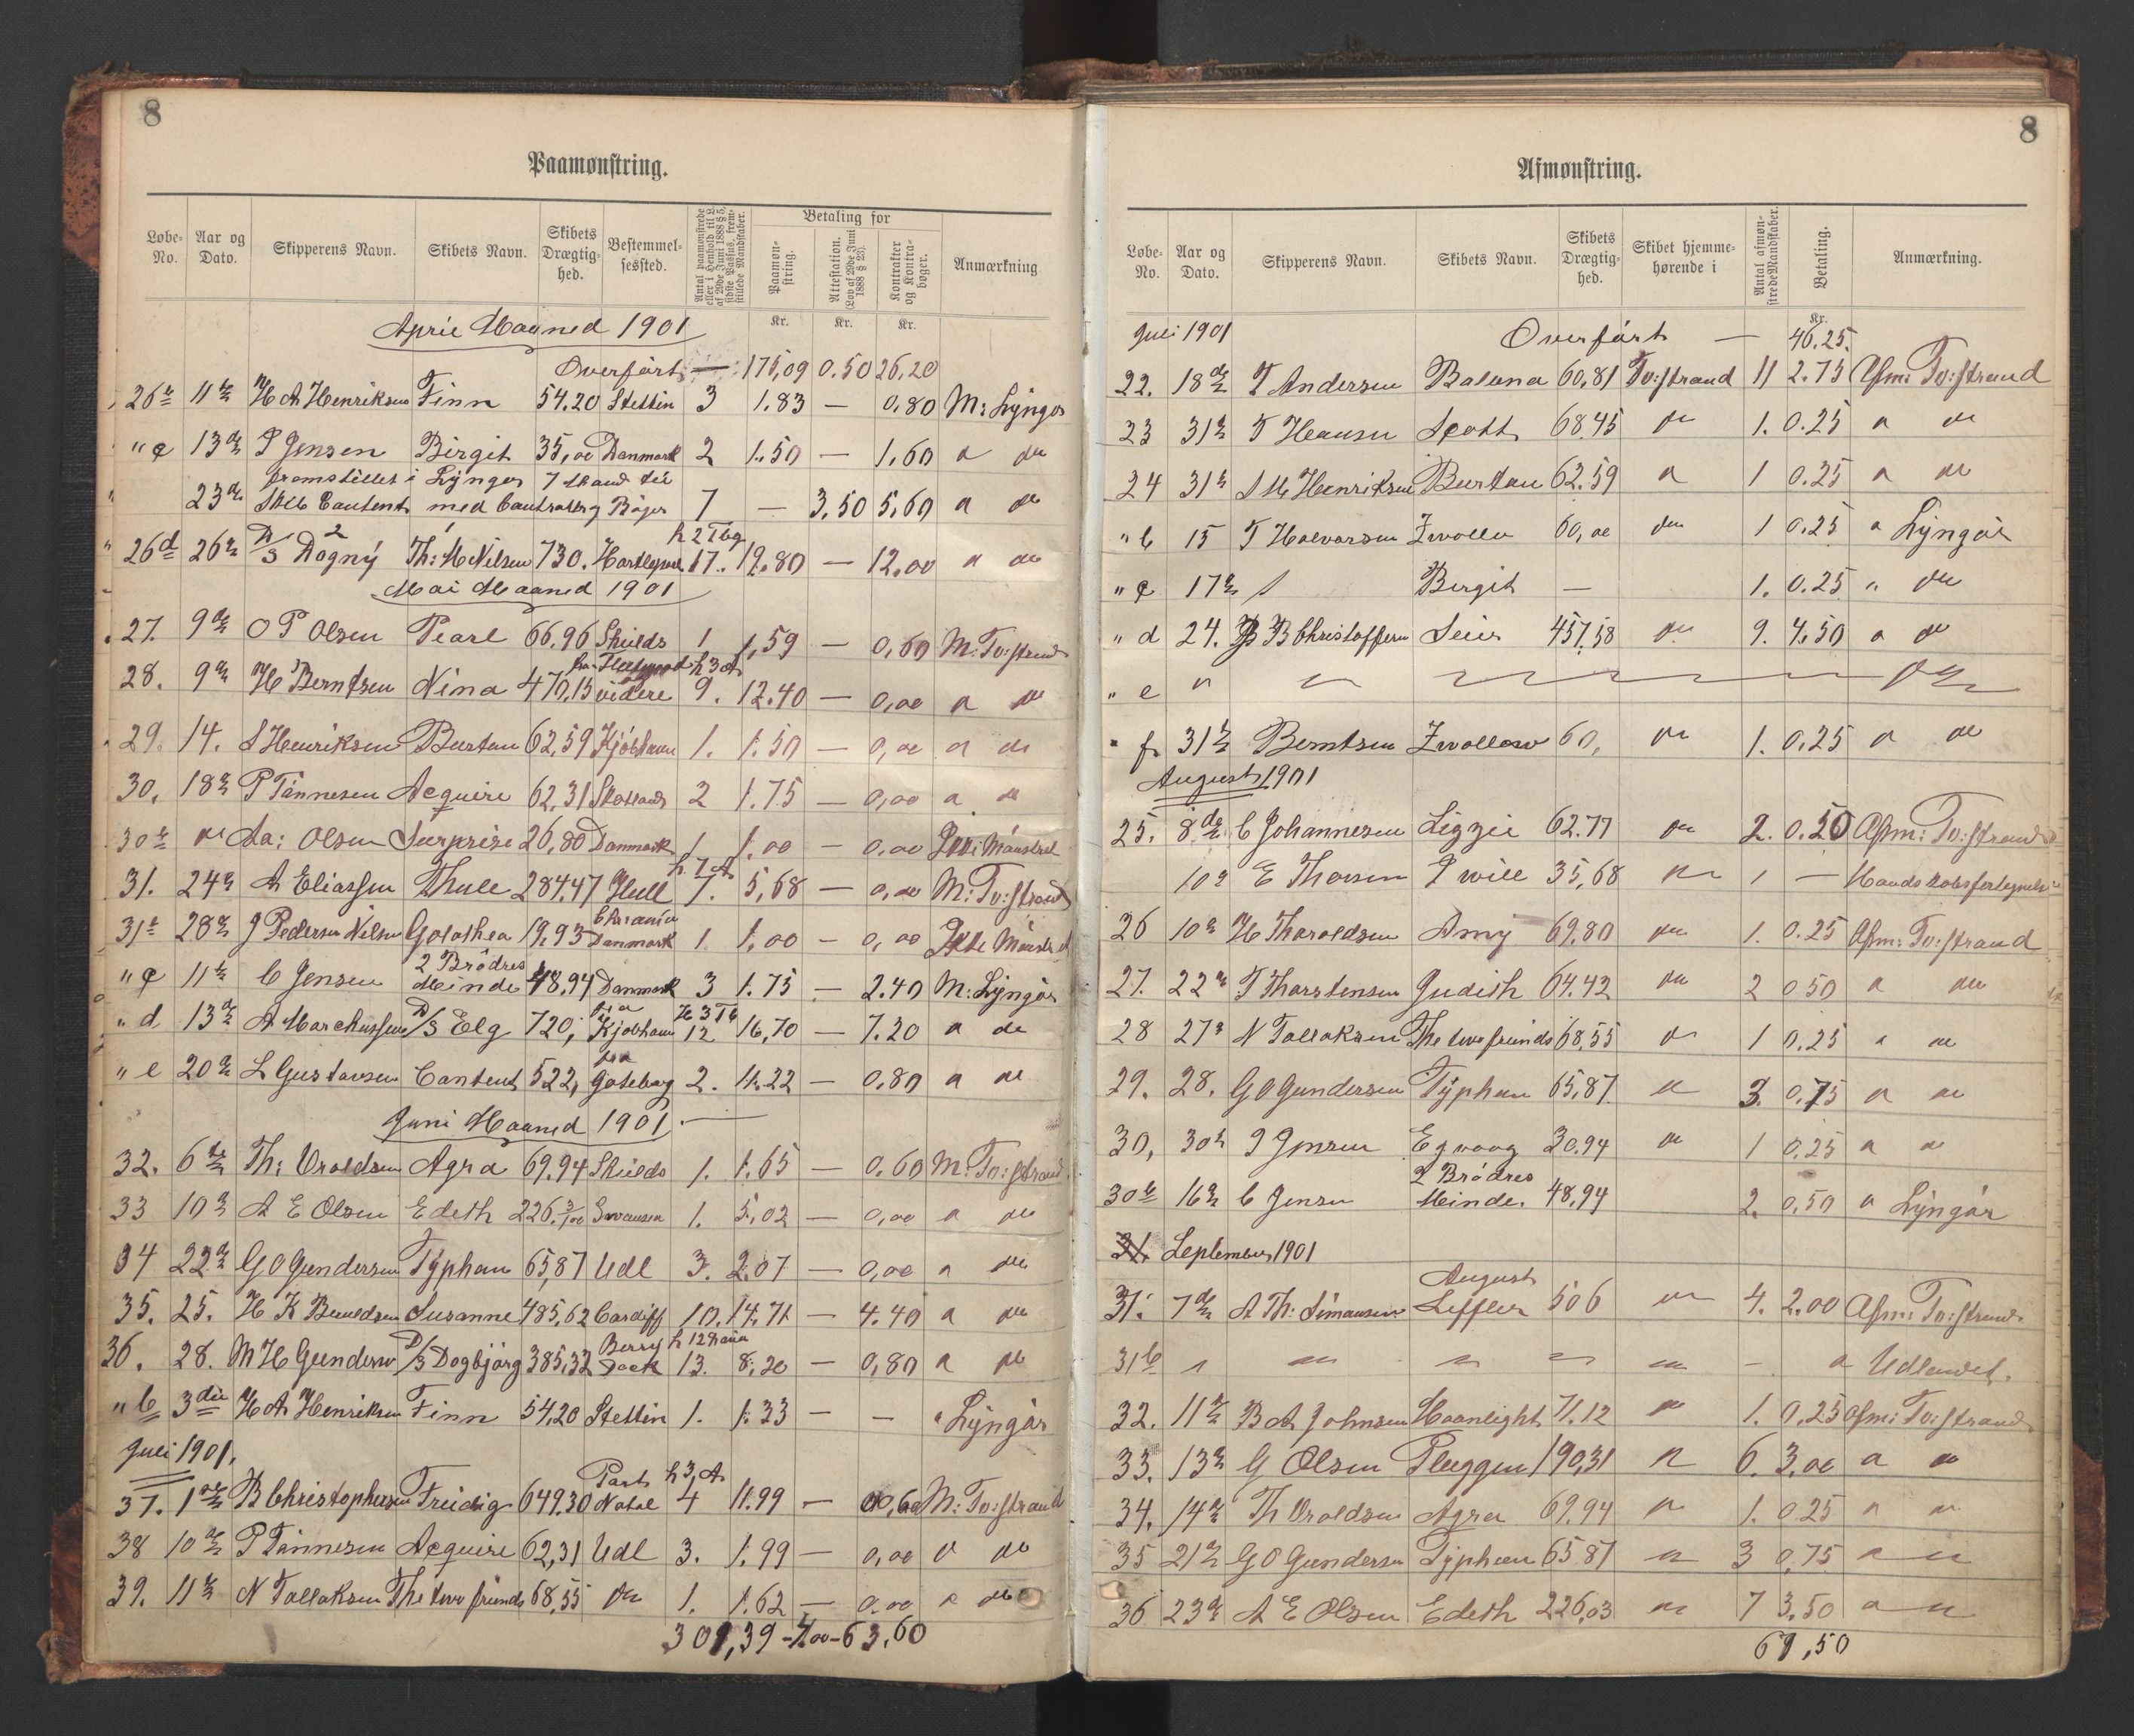 8
Paamønstring.
Løbe-No. Aar og Dato. Skipperens Navn. Skibets Navn. Skibets Drægtig-hed. Bestemmel-sessted. Antal paamønstrede eller i Henhold til L. af 29de Juni 1888 § 5, sidste Passus, frem-stillede Mandskaber. Betaling for Paamøn-string. Attestation. (Lov af 29de Juni 1888 § 23). Kontrakter og Kontra-bøger. Anmærkning
Kr. Kr. Kr.
April Maaned 1901
Overført — 175,09 0.50 26,20
26b 11te H A Henriksen Finn 54.20 Stettin 3 1.83 — 0,80 M: Lyngør
" c 13de P Jensen Birgit 35,00 Danmark 2 1.50 — 1,60 a do
fremstillet i Lyngør 7 Mand til
23de Skib Content med Contraktbøger 7 — 3,50 5,60 a do
26d 26de D/S Dagny Th: M Nilsen 730. Hartlepool 17. 19.80 — 12,00 a do
Mai Maaned 1901
27. 9de O P Olsen Pearl 66,96 Shields 1 1,59 — 0,60 M: Tv:strand
28. 9de H Berntsen Nina 470,15 Fleetwood videre h 3 A 9. 12.40 — 0,00 a do
29. 14. S Henriksen Burtau 62,59 Kjøbhavn 1. 1.50 — 0,00 a do
30. 18de P Tønnesen Acquire 62,31 Skotland 2 1.75 — 0,00 a do
30b do Aa: Olsen Surprise 26,80 Danmark 1 1,00 — 0,00 Ikke Mønstret
31. 24de A Eliassen Thule 284.47 Hull h 7 A 7. 5,68 — 0,00 M: Tv:strand
31b 28de J Pedersen Nilsen Golathea 19,93 Chrania Danmark 1. 1,00 — 0,00 Ikke Mønstret
" c 11te C Jensen 2 Brødres Minde 48,94 Danmark 3 1.75 — 2.40 M: Lyngør
" d 13de A Marchussen D/S Elg 720, Kjøbhavn 12 16,70 — 7.20 a do
" e 20de L Gustavsen Content 522, fra Gøteborg 2. 11.22 — 0,80 a do
Juni Maaned 1901.
32. 6te Th: Uroldsen Agra 69,94 Shields 1. 1.65 — 0.60 M: Tv:strand
33 10de A E Olsen Edeth 226.3/100 Swansea 1. 5,02 — 0,00 a do
34 22de G O Gundersen Typhon 65,87 Udl 3. 2.07 — 0,00 a do
35. 25. H K Susanne 485,62 Cardiff 10. 14.71 — 4.40 a do
36. 28. M H Gundersen D/S Dagbjørg 385,32 Berry Dock 13. 8,20 — 0,80 a do
" b 3die H A Henriksen Finn 54,20 Stettin 1. 1.33 — — " Lyngør
Juli 1901.
37. 1ste B Christophersen Freidig 649.30 Port Natal h 3 A 4 11.99 — 0,60 M: Tv:strand
38 10de P Tønnesen Acquire 62,31 Udl 3. 1.99 — 0,00 a do
39. 11te N Tallaksen The two friends 68,55 do 1. 1.62 — 0.00 a do
301,39 - 4.00 - 63,60
8
Afmønstring.
Løbe-No. Aar og Dato. Skipperens Navn. Skibets Navn. Skibets Drægtig-hed. Skibet hjemme-hørende i Antal afmøn-strede Mandskaber. Betaling. Anmærkning.
Kr.
Juli 1901 Overført — 46.25.
22. 18de T Andersen Balena 60,81 Tv:strand 11 2.75 Afm: Tv:strand
23 31te T Hansen Scott 68.45 do 1. 0.25 a do
24 31te S M Henriksen Burtau 62.59 a 1 0.25 a do
" b 15 T Halvorsen Zwolle 60,00 do 1 0.25 a Lyngør
" c 17de Birgit — 1. 0.25 " do
" d 24. B Christoffersen Seier 457,58 do 9. 4,50 a do
" e
" f 31te Berntsen Zwollow 60, do 1. 0,25 a do
August 1901
25. 8de C Johannesen Lizzie 62.77 do 2. 0.50 Afm: Tv:strand
10de E Thorsen I will 35,68 1 — Mandskabsfortegnelse
26 10de H Tharoldsen Amy 69.80 do 1. 0.25 Afm: Tv:strand
27. 22de T Thorstensen Judith 64.42 do 2 0 50 a do
28 27de N Tallaksen The two friends 68,55 do 1 0.25 a do
29. 28. G O Gundersen Typhon 65,87. do 3. 0,75 a do
30, 30te I Jensen Egvaag 30.94 do 1 0.25 a a
30b 16de C Jensen 2 Brødres Minde. 48,94 2. 0,50 a Lyngør
31. September 1901
31. 7de A Th: Simonsen August Leffler 506 do 4. 2.00 Afm: Tv:strand.
31b — a Udlandet.
32. 11te B A Johnsen Moonlight 71.12 do 1. 0.25 Afm: Tv:strand
33. 13de G Olsen Pluggen 190,31 6. 3,00 a do
34. 14de Th Uroldsen Agra 69,94 1. 0.25 a do
35 21de G O Gundersen Typhon 65.87 3 0,75 a
36 23de A E Olsen Edeth 226,03 7 3,50 a
61,50